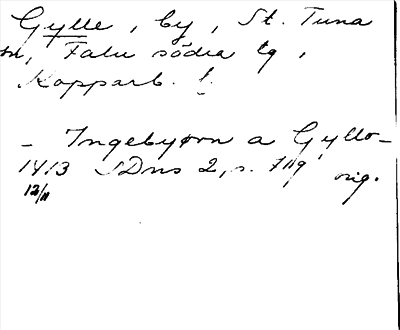 Gylle, by, St. Tuna
sn, Falu södra tg,
Kopparb. l.
- Ingebyørn a Gyllo-
1413 SDns 2, s. 719 orig.
12/11